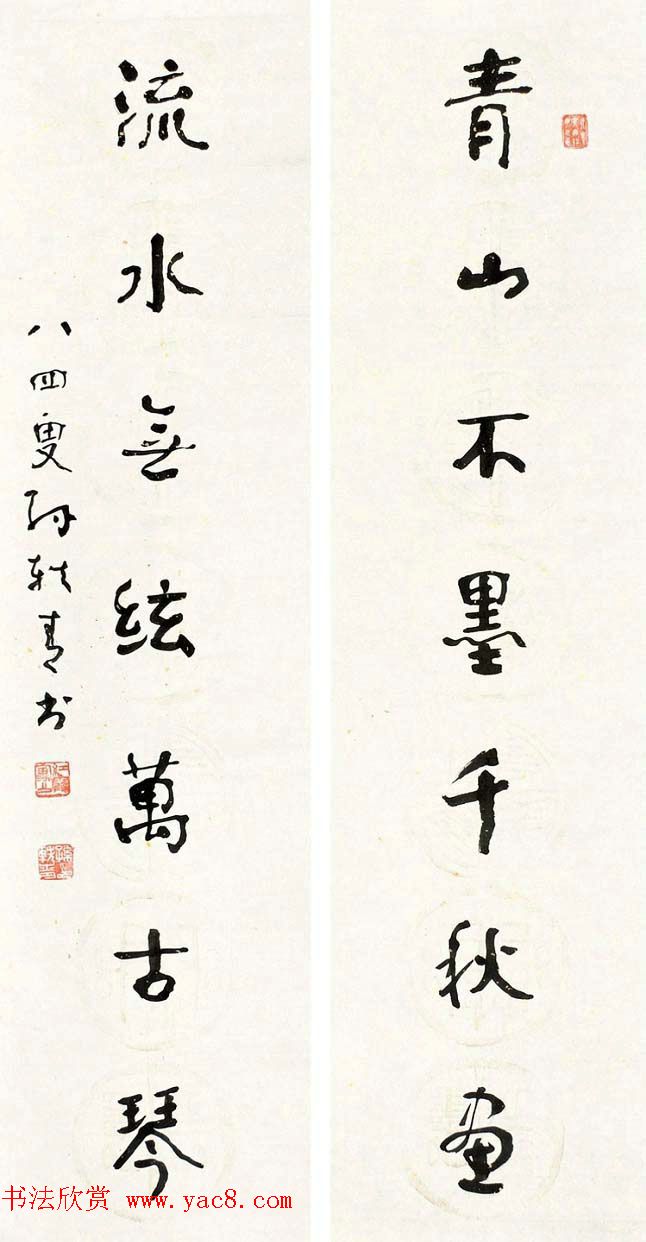 青山不墨千秋画
流水無絃萬古琴
八四叟孙轶青书
书法欣赏 www.yac8.com